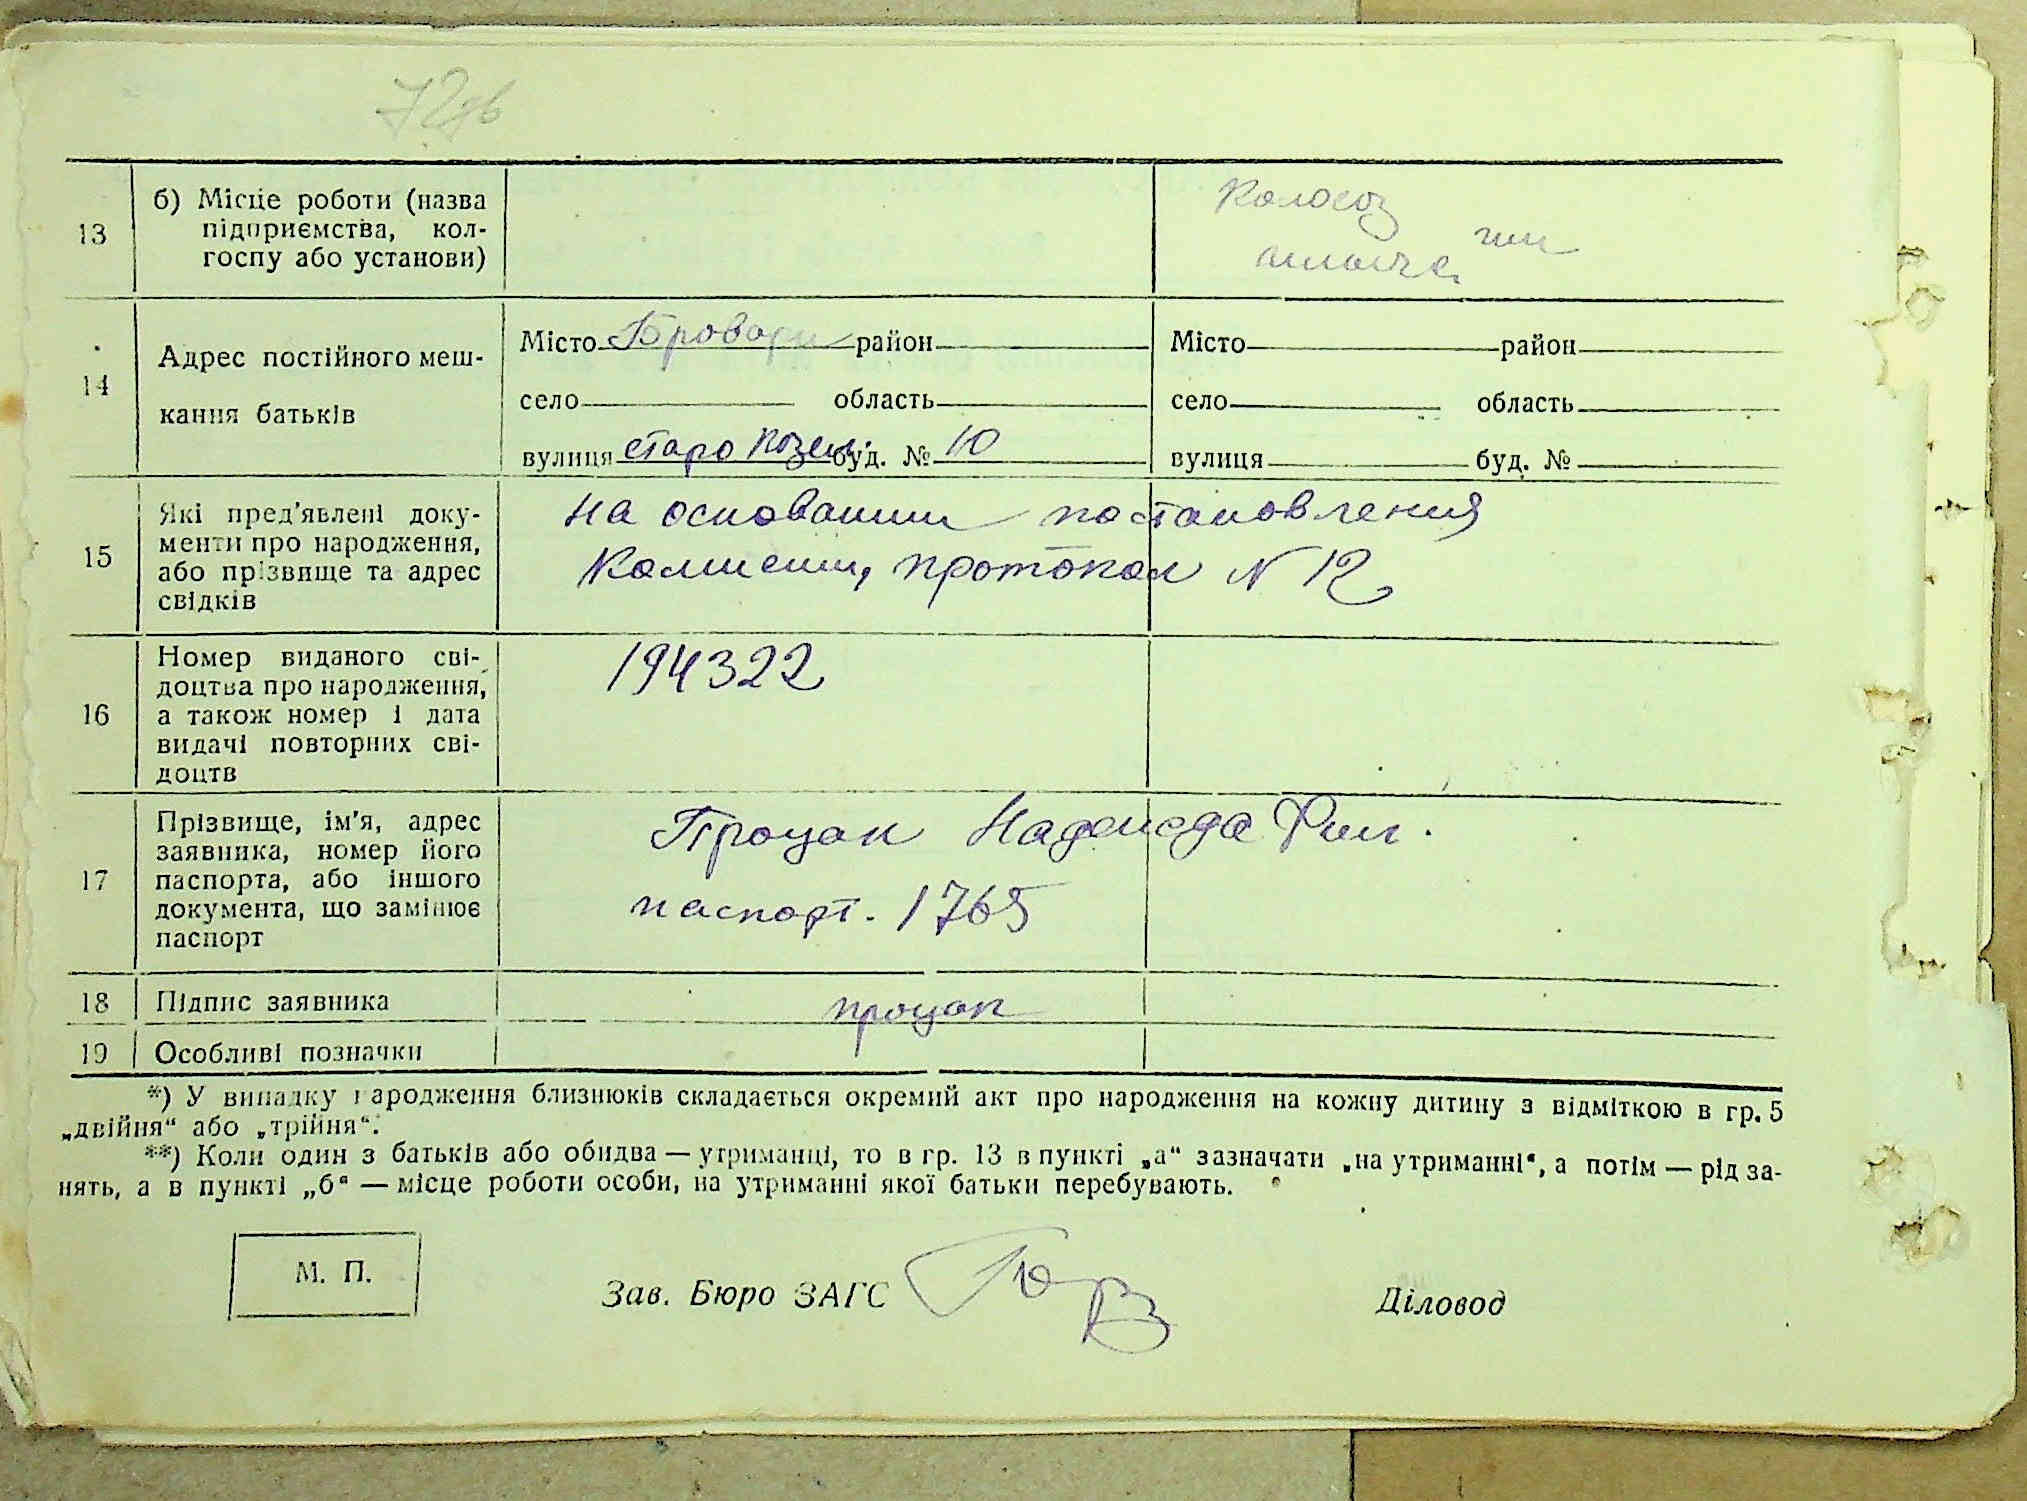 72
13
б) Місце роботи (назва
підприємства, кол-
госпу або установи)
14
Адрес постійного меш-
кання батьків
Місто Бровары район
село область
вулиця старо буд. № 10
Місто район
село область
вулиця буд. №
15
Які пред'явлені доку-
менти про народження,
або прізвище та адрес
свідків
на основании постановления
комиссии, протокол N 12
16
Номер виданого сві-
доцтва про народження,
а також номер і дата
видачі повторних сві-
доцтв
194322
17
Прізвище, ім'я, адрес
заявника, номер його
паспорта, або іншого
документа, що замінює
паспорт
Процак Надежда Фил.
паспорт. 1765
18
Підпис заявника
процак
19
Особливі позначки
*) У випадку народження близнюків складається окремий акт про народження на кожну дитину з відміткою в гр. 5
„двійня“ або „трійня“.
**) Коли один з батьків або обидва — утриманці, то в гр. 13 в пункті „а“ зазначати „на утриманні“, а потім — рід за-
нять, а в пункті „б“ — місце роботи особи, на утриманні якої батьки перебувають.
М. П.
Зав. Бюро ЗАГС
Діловод